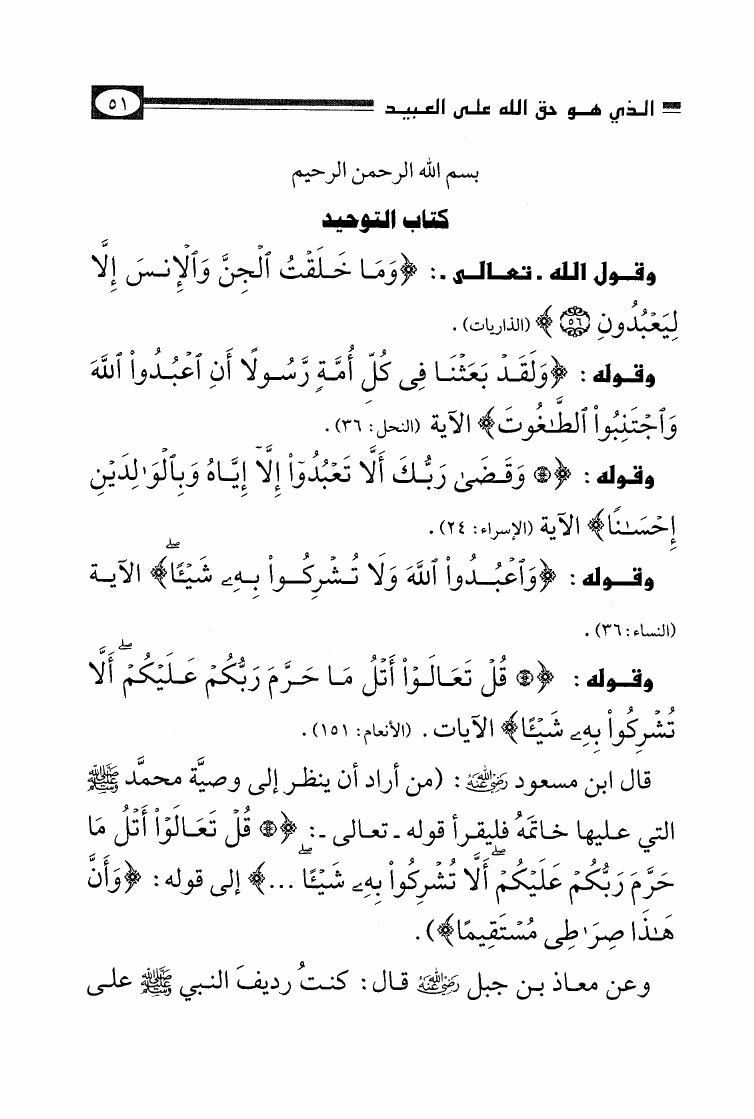 الـذي هـو حق الله على العبيـد ٥١
بسم الله الرحمن الرحيم
كتاب التوحيد
وقـول الله ـ تعـالـى ـ: ﴿وَمَا خَلَقْتُ ٱلْجِنَّ وَٱلْإِنسَ إِلَّا
لِيَعْبُدُونِ ٥٦﴾ (الذاريات).
وقـوله: ﴿وَلَقَدْ بَعَثْنَا فِى كُلِّ أُمَّةٍ رَّسُولًا أَنِ ٱعْبُدُوا۟ ٱللَّهَ
وَٱجْتَنِبُوا۟ ٱلطَّـٰغُوتَ﴾ الآية (النحل: ٣٦).
وقـوله: ﴿۞ وَقَضَىٰ رَبُّكَ أَلَّا تَعْبُدُوٓا۟ إِلَّآ إِيَّاهُ وَبِٱلْوَٰلِدَيْنِ
إِحْسَـٰنًا﴾ الآية (الإسراء: ٢٤).
وقـوله: ﴿وَٱعْبُدُوا۟ ٱللَّهَ وَلَا تُشْرِكُوا۟ بِهِۦ شَيْـًٔاۖ﴾ الآيـة
(النساء: ٣٦).
وقـوله: ﴿۞ قُلْ تَعَالَوْا۟ أَتْلُ مَا حَرَّمَ رَبُّكُمْ عَلَيْكُمْۖ أَلَّا
تُشْرِكُوا۟ بِهِۦ شَيْـًٔا﴾ الآيات. (الأنعام: ١٥١).
قال ابن مسعود رضي الله عنه: (من أراد أن ينظـر إلى وصيَّة محمَّد ﷺ
التي عليها خاتمَهُ فليقـرأ قوله ـ تعـالى ـ: ﴿۞ قُلْ تَعَالَوْا۟ أَتْلُ مَا
حَرَّمَ رَبُّكُمْ عَلَيْكُمْۖ أَلَّا تُشْرِكُوا۟ بِهِۦ شَيْـًٔاۖ ...﴾ إلى قوله: ﴿وَأَنَّ
هَـٰذَا صِرَٰطِى مُسْتَقِيمًا﴾).
وعن معـاذ بـن جبل رضي الله عنه قـال: كنـتُ رديفَ النبي ﷺ علـى